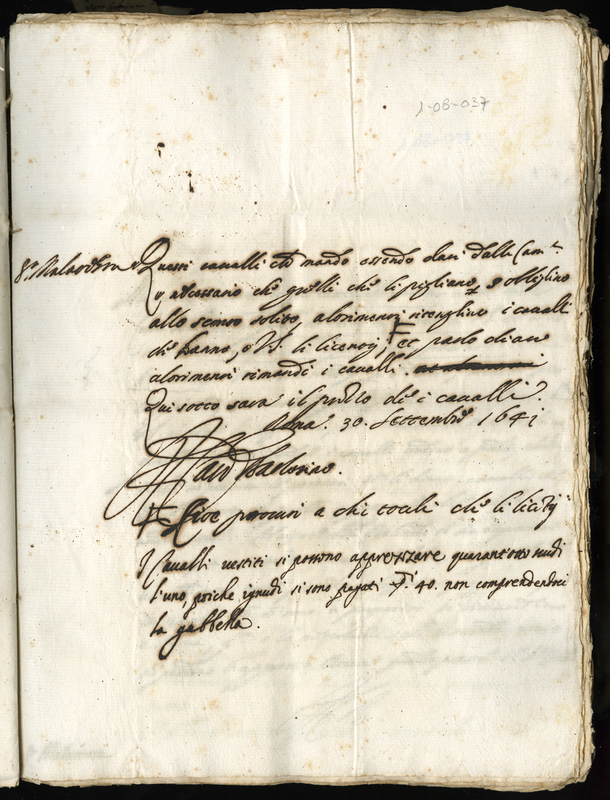 1-08-037
Questi cavalli ch'io mando essendo dati dalla Cam.ra
è necessario che quelli che li pigliano, s'oblighino
allo sconto solito, altrimenti ritenghino i cavalli
che hanno, o VS. li licentij. F et parlo chiaro
altrimenti rimandi i cavalli.
Qui sotto sarà il prezzo de i cavalli.
Roma. 30. Settembre 1641
F Cioè procuri a chi tocchi che li licentij
I Cavalli vestiti si possono apprezzare quarantotto scudi
l'uno, poiche ignudi si sono pagati 40. non comprendendoci
la gabbella.